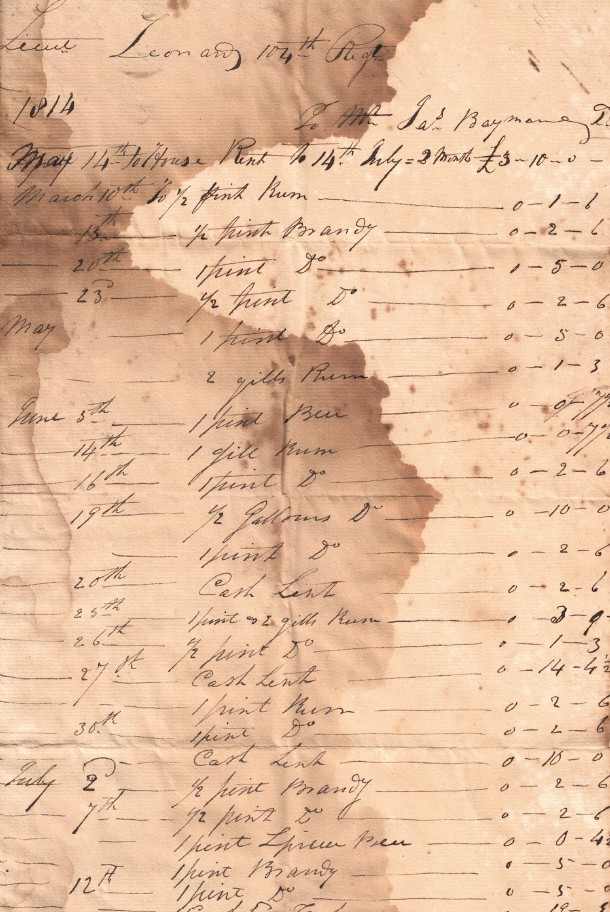 Lieut Leonard 104th Regt
1814
To Mr Jas Bayman Dr
May 14th To House Rent to 14th July = 2 Month £3-10-0-
March 10th To 1/2 pint Rum 0-1-6
15th 1/2 pint Brandy 0-2-6
20th 1 pint Do 0-5-0
23d 1/2 pint Do 0-2-6
May 1 pint Do 0-5-0
2 gills Rum 0-1-3
June 5th 1 pint Beer 0-0-7 1/2
14th 1 gill Rum 0-0-7 1/2
16th 1 pint Do 0-2-6
19th 1/2 Gallons Do 0-10-0
1 pint Do 0-2-6
20th Cash Lent 0-2-6
25th 1 pint & 2 gills Rum 0-3-9
26th 1/2 pint Do 0-1-3
27th Cash Lent 0-14-4 1/2
1 pint Rum 0-2-6
30th 1 pint Do 0-2-6
Cash Lent 0-10-0
July 2d 1/2 pint Brandy 0-2-6
7th 1/2 pint Do 0-2-6
1 pint Spruce Beer 0-0-4 1/2
1 pint Brandy 0-5-0
12th 1 pint Do 0-5-0